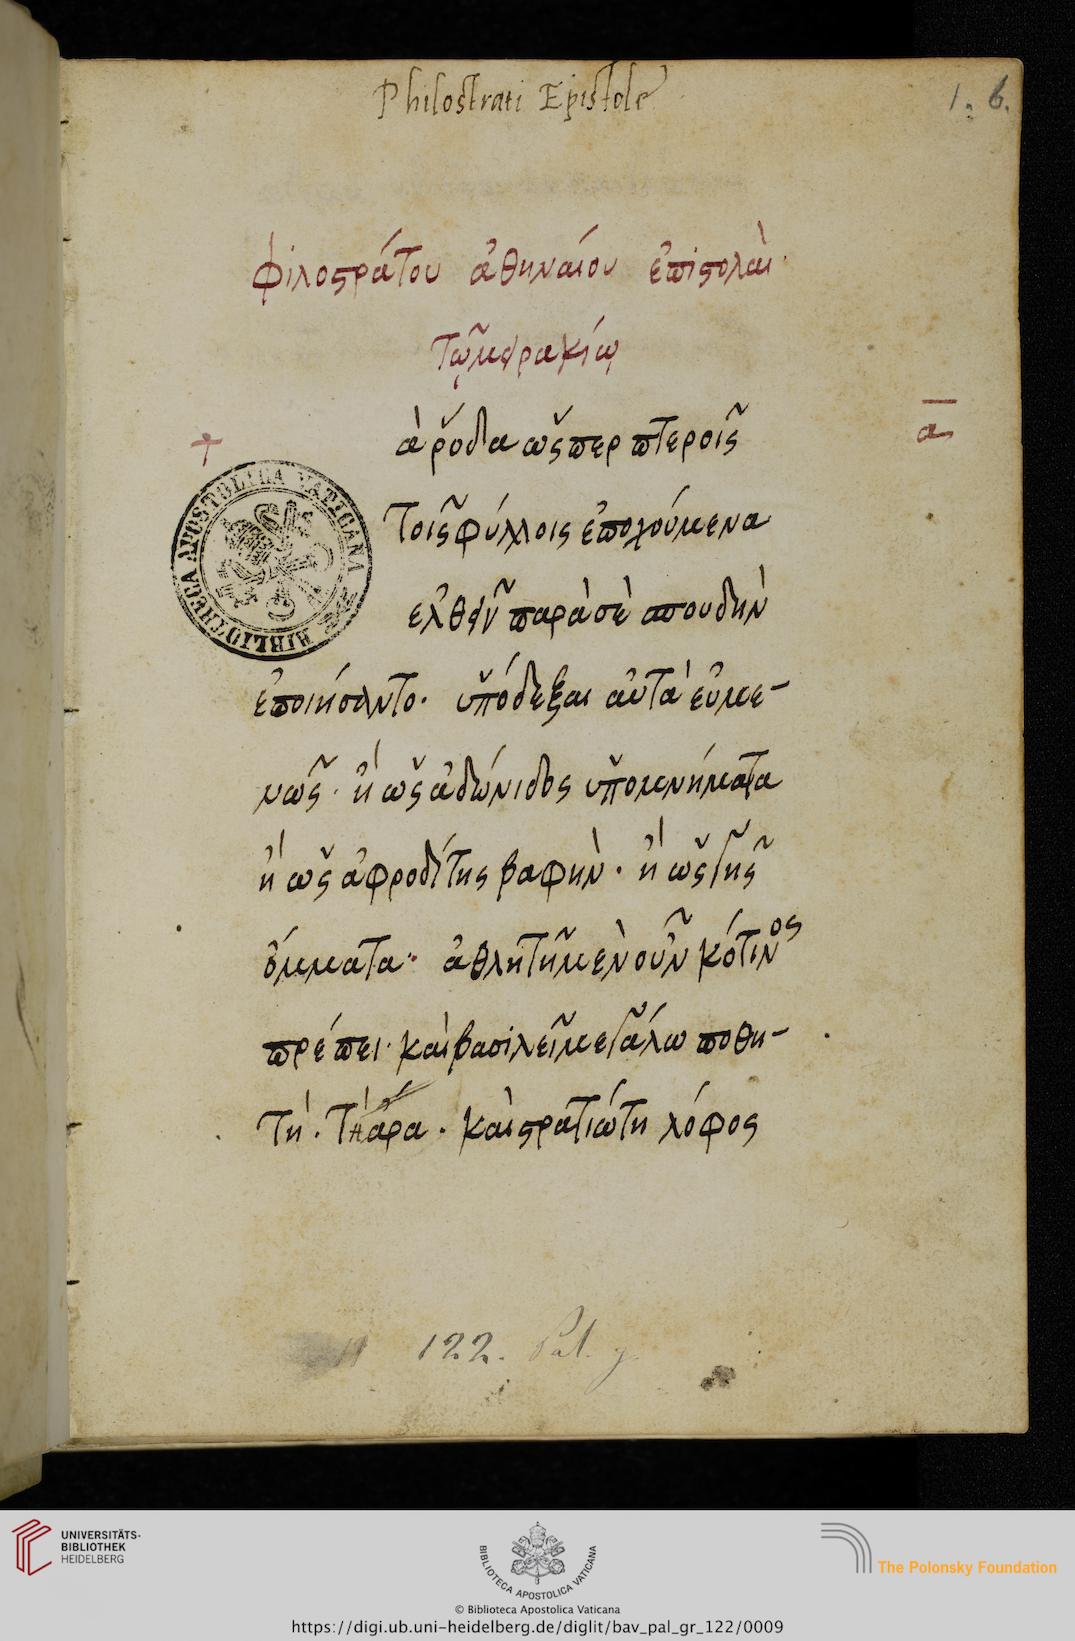 Philostrati Epistole
1. 6.
φιλοστράτου ἀθηναίου ἐπιστολαὶ.
τῶ μειρακίω
ὰ ῥόδα ὥσπερ πτεροῖς
α
τοῖς φύλλοις ἐποχούμενα
ἐλθεῖν παρὰ σὲ σπουδὴν
ἐποιήσαντο. ὑπόδεξαι αὐτὰ εὐμε-
νῶς. ἢ ὡς ἀδώνιδος ὑπομνήματα
ἢ ὡς ἀφροδίτης βαφὴν. ἢ ὡς γῆς
ὄμματα. ἀθλητῆ μὲν οὖν κότινος
πρέπει. καὶ βασιλεῖ μεγάλω
καὶ στρατιώτη λόφος
BIBLIOTHECA APOSTOLICA VATICANA
122. Pal. g
UNIVERSITÄTS-
BIBLIOTHEK
HEIDELBERG
BIBLIOTECA APOSTOLICA VATICANA
The Polonsky Foundation
© Biblioteca Apostolica Vaticana
https://digi.ub.uni-heidelberg.de/diglit/bav_pal_gr_122/0009